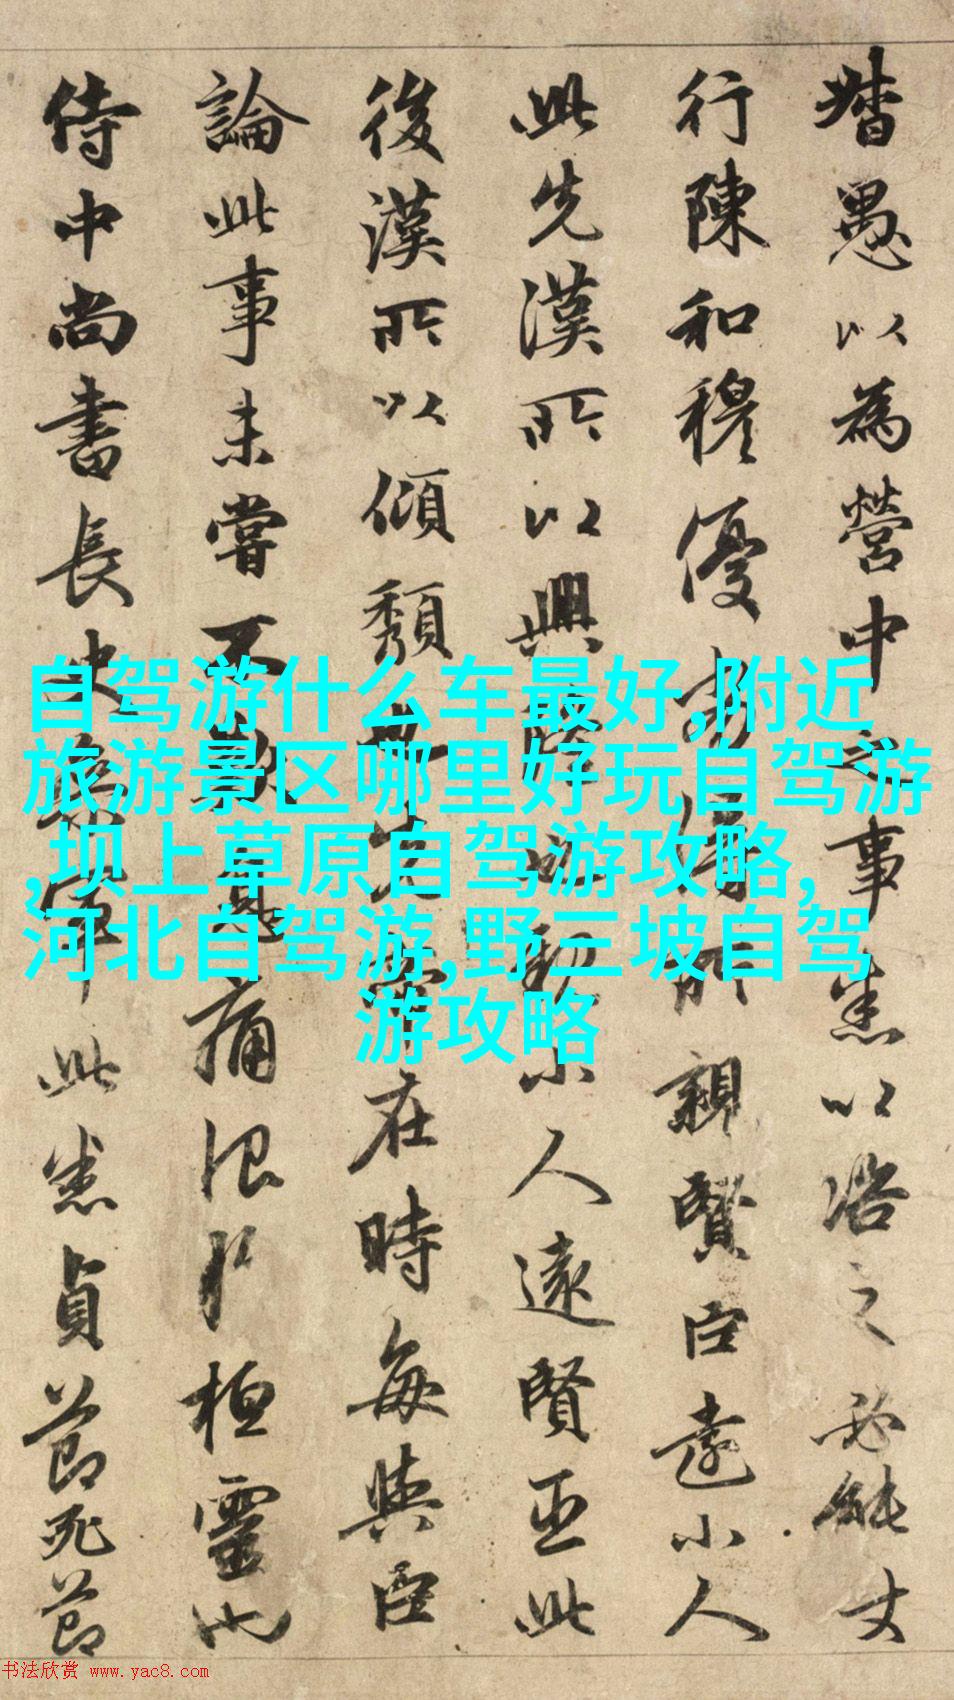 愚以為營中之事悉以之必能丈
行陳和穆優劣得所親賢臣遠小人
此先漢所以興隆也親小人遠賢臣此
後漢所以傾頹也先帝在時每與臣
論此事未嘗不歎息痛恨於桓靈也
侍中尚書長史參軍此悉貞節死節
自驾游什么车最好,附近
旅游景区哪里好玩自驾游
,坝上草原自驾游攻略,
河北自驾游,野三坡自驾
游攻略
书法欣赏 www.yac8.com